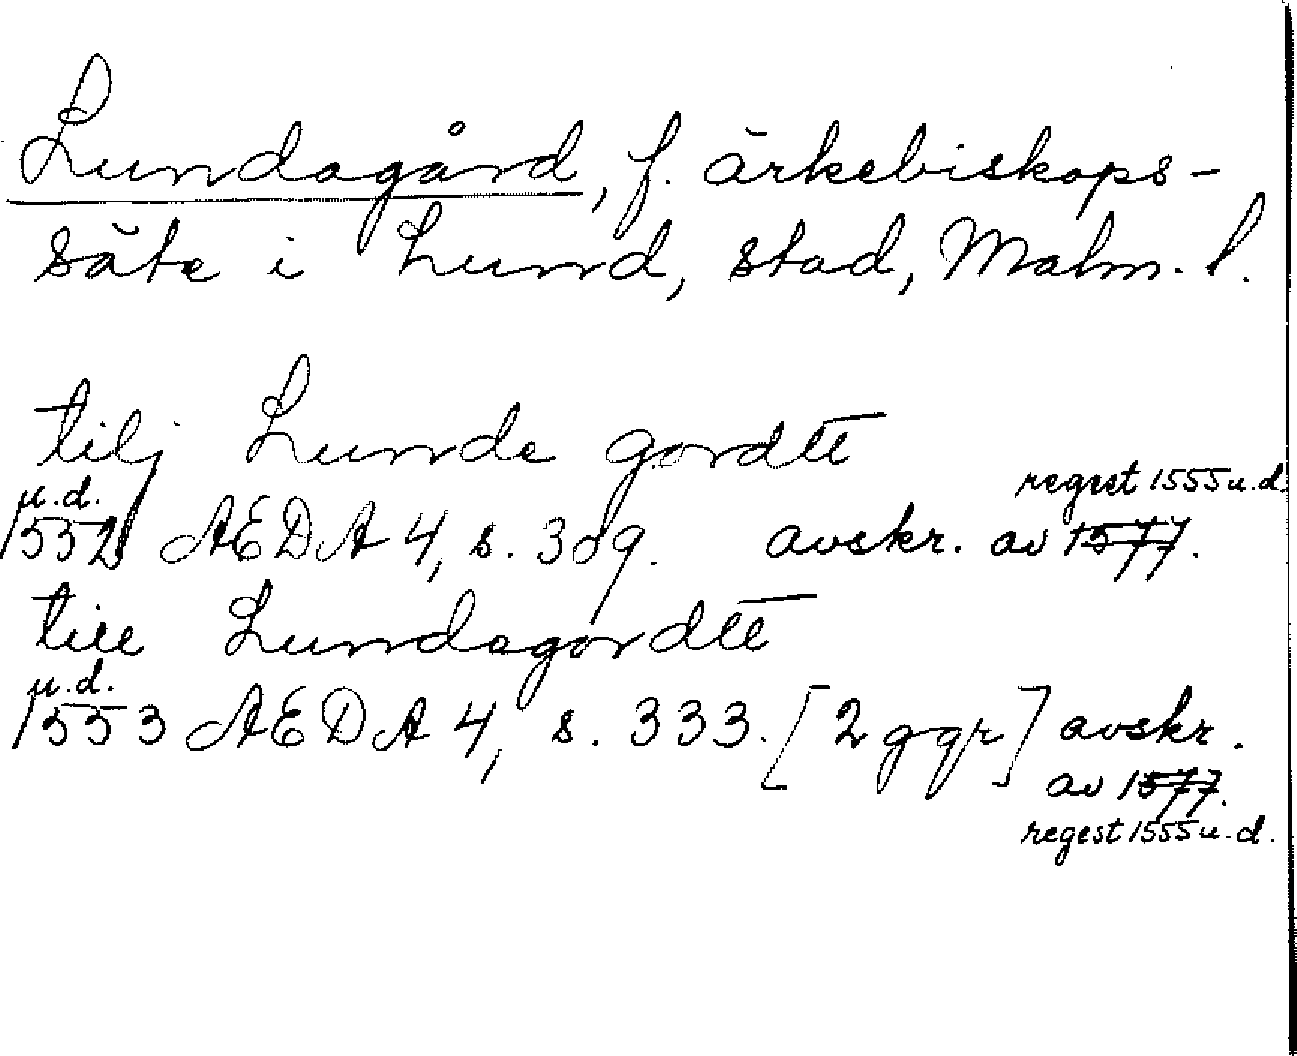 Lundagård, f. ärkebiskops-
säte i Lund, stad, Malm. l.
tilj Lunde gordtt
u.d. regest 1555 u.d.
1552 AEDA 4, s. 309. avskr. av 1577.
till Lundagordtt
u.d.
1553 AEDA 4, s. 333. [2 ggr] avskr.
av 1577.
regest 1555 u.d.